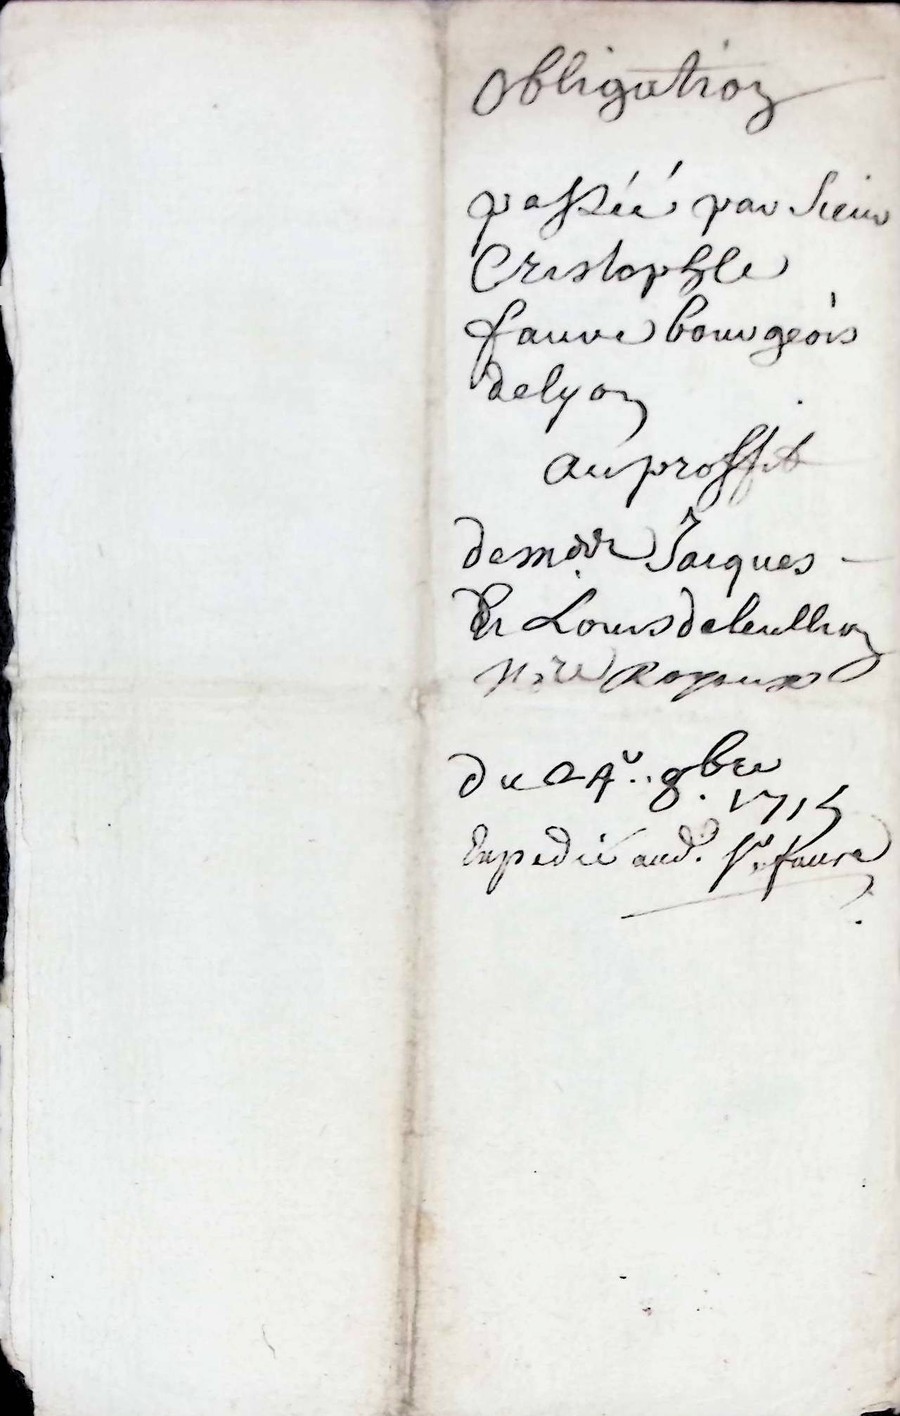 Obligation
passéé par Sieur
Cristophle
faure bourgeois
de lyon
au proffit
de me. Jacques
Et Louis deleullion
Nore Royaux
du 24e. 8bre
1715
Expedié aud. Sr. faure